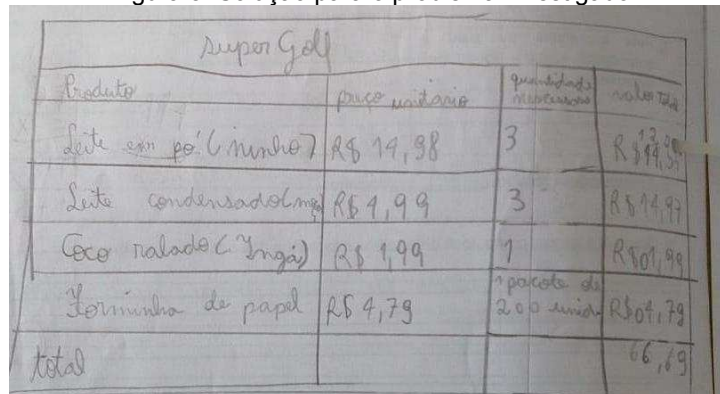 Solução para o problema investigado
Super Goll
Produto preço unitário quantidade necessária valor Total
Leite em pó (ninho) R$ 14,98 3
Leite condensado (moça) R$ 4,99 3 R$ 14,97
Coco ralado (Ingá) R$ 1,99 1 R$ 01,99
Forminha de papel R$ 4,79 1 pacote de 200 unid. R$ 04,79
total 66,69